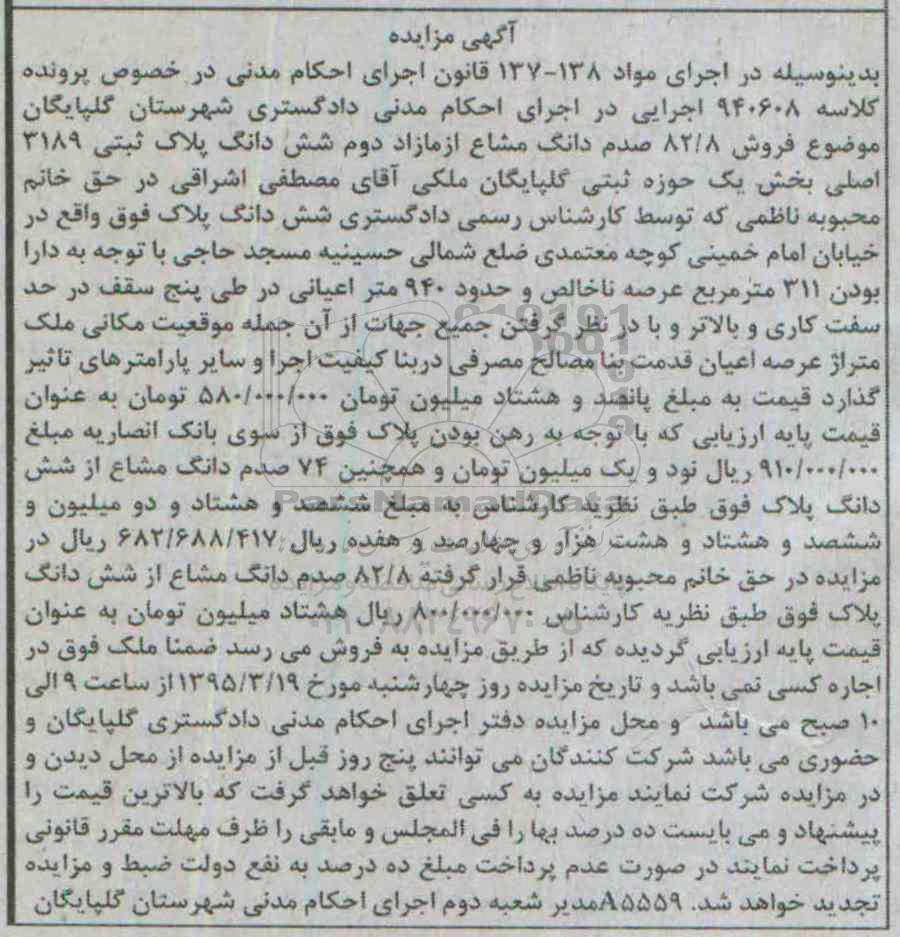 آگهی مزایده
بدینوسیله در اجرای مواد ۱۳۸-۱۳۷ قانون اجرای احکام مدنی در خصوص پرونده
کلاسه ۹۴۰۶۰۸ اجرایی در اجرای احکام مدنی دادگستری شهرستان گلپایگان
موضوع فروش ۸۲/۸ صدم دانگ مشاع ازمازاد دوم شش دانگ پلاک ثبتی ۳۱۸۹
اصلی بخش یک حوزه ثبتی گلپایگان ملکی آقای مصطفی اشراقی در حق خانم
محبوبه ناظمی که توسط کارشناس رسمی دادگستری شش دانگ پلاک فوق واقع در
خیابان امام خمینی کوچه معتمدی ضلع شمالی حسینیه مسجد حاجی با توجه به دارا
بودن ۳۱۱ مترمربع عرصه ناخالص و حدود ۹۴۰ متر اعیانی در طی پنج سقف در حد
سفت کاری و بالاتر و با در نظر گرفتن جمیع جهات از آن جمله موقعیت مکانی ملک
متراژ عرصه اعیان قدمت بنا مصالح مصرفی دربنا کیفیت اجرا و سایر پارامترهای تاثیر
گذارد قیمت به مبلغ پانصد و هشتاد میلیون تومان ۵۸۰/۰۰۰/۰۰۰ تومان به عنوان
قیمت پایه ارزیابی که با توجه به رهن بودن پلاک فوق از سوی بانک انصاربه مبلغ
۹۱۰/۰۰۰/۰۰۰ ریال نود و یک میلیون تومان و همچنین ۷۴ صدم دانگ مشاع از شش
دانگ پلاک فوق طبق نظریه کارشناس به مبلغ ششصد و هشتاد و دو میلیون و
ششصد و هشتاد و هشت هزار و چهارصد و هفده ریال ۶۸۲/۶۸۸/۴۱۷ ریال در
مزایده در حق خانم محبوبه ناظمی قرار گرفته ۸۲/۸ صدم دانگ مشاع از شش دانگ
پلاک فوق طبق نظریه کارشناس ۸۰۰/۰۰۰/۰۰۰ ریال هشتاد میلیون تومان به عنوان
قیمت پایه ارزیابی گردیده که از طریق مزایده به فروش می رسد ضمنا ملک فوق در
اجاره کسی نمی باشد و تاریخ مزایده روز چهارشنبه مورخ ۱۳۹۵/۳/۱۹ از ساعت ۹ الی
۱۰ صبح می باشد و محل مزایده دفتر اجرای احکام مدنی دادگستری گلپایگان و
حضوری می باشد شرکت کنندگان می توانند پنج روز قبل از مزایده از محل دیدن و
در مزایده شرکت نمایند مزایده به کسی تعلق خواهد گرفت که بالاترین قیمت را
پیشنهاد و می بایست ده درصد بها را فی المجلس و مابقی را ظرف مهلت مقرر قانونی
پرداخت نمایند در صورت عدم پرداخت مبلغ ده درصد به نفع دولت ضبط و مزایده
تجدید خواهد شد. A۵۵۵۹مدیر شعبه دوم اجرای احکام مدنی شهرستان گلپایگان
ParsNamadData